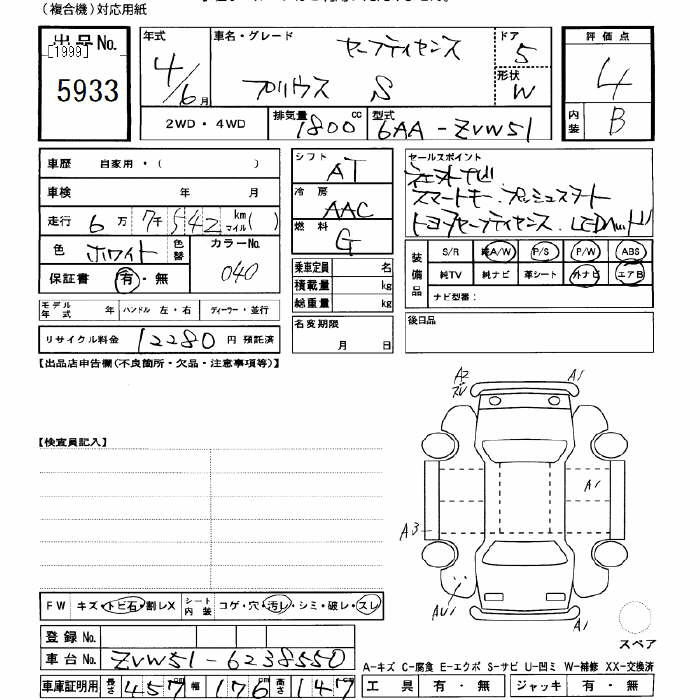 (複合機)対応用紙
出品No.
[1999]
5933
年式
4/6月
車名・グレード
セーフティセンス
プリウス S
ドア
5
形状
W
評価点
4
内装
B
2WD・4WD
排気量
1800cc
型式
6AA-ZVW51
車歴 自家用・( )
車検 年 月
走行 6万7千542km マイル( )
色 ホワイト 色替
カラーNo.
040
保証書 有・無
モデル年式 年 ハンドル 左・右 ディーラー・並行
リサイクル料金 12280 円 預託済
シフト
AT
冷房
AAC
燃料
G
乗車定員 名
積載量 kg
総重量 kg
名変期限
月 日
セールスポイント
スマートキー.プッシュスタート
トヨタセーフティセンス.LEDヘッド
装備品
S/R 純A/W P/S P/W ABS
純TV 純ナビ 革シート 外ナビ エアB
ナビ型番:
後日品
【出品店申告欄(不良箇所・欠品・注意事項等)】
【検査員記入】
A2
A1
A1
A3
AU1
A1
スペア
FW キズ・トビ石・割レX シート内装 コゲ・穴・汚レ・シミ・破レ・スレ
登録No.
車台No. ZVW51-6238550
車庫証明用 長さ 457cm 幅 176cm 高さ 147
A-キズ C-腐食 E-エクボ S-サビ U-凹ミ W-補修 XX-交換済
工具 有・無 ジャッキ 有・無